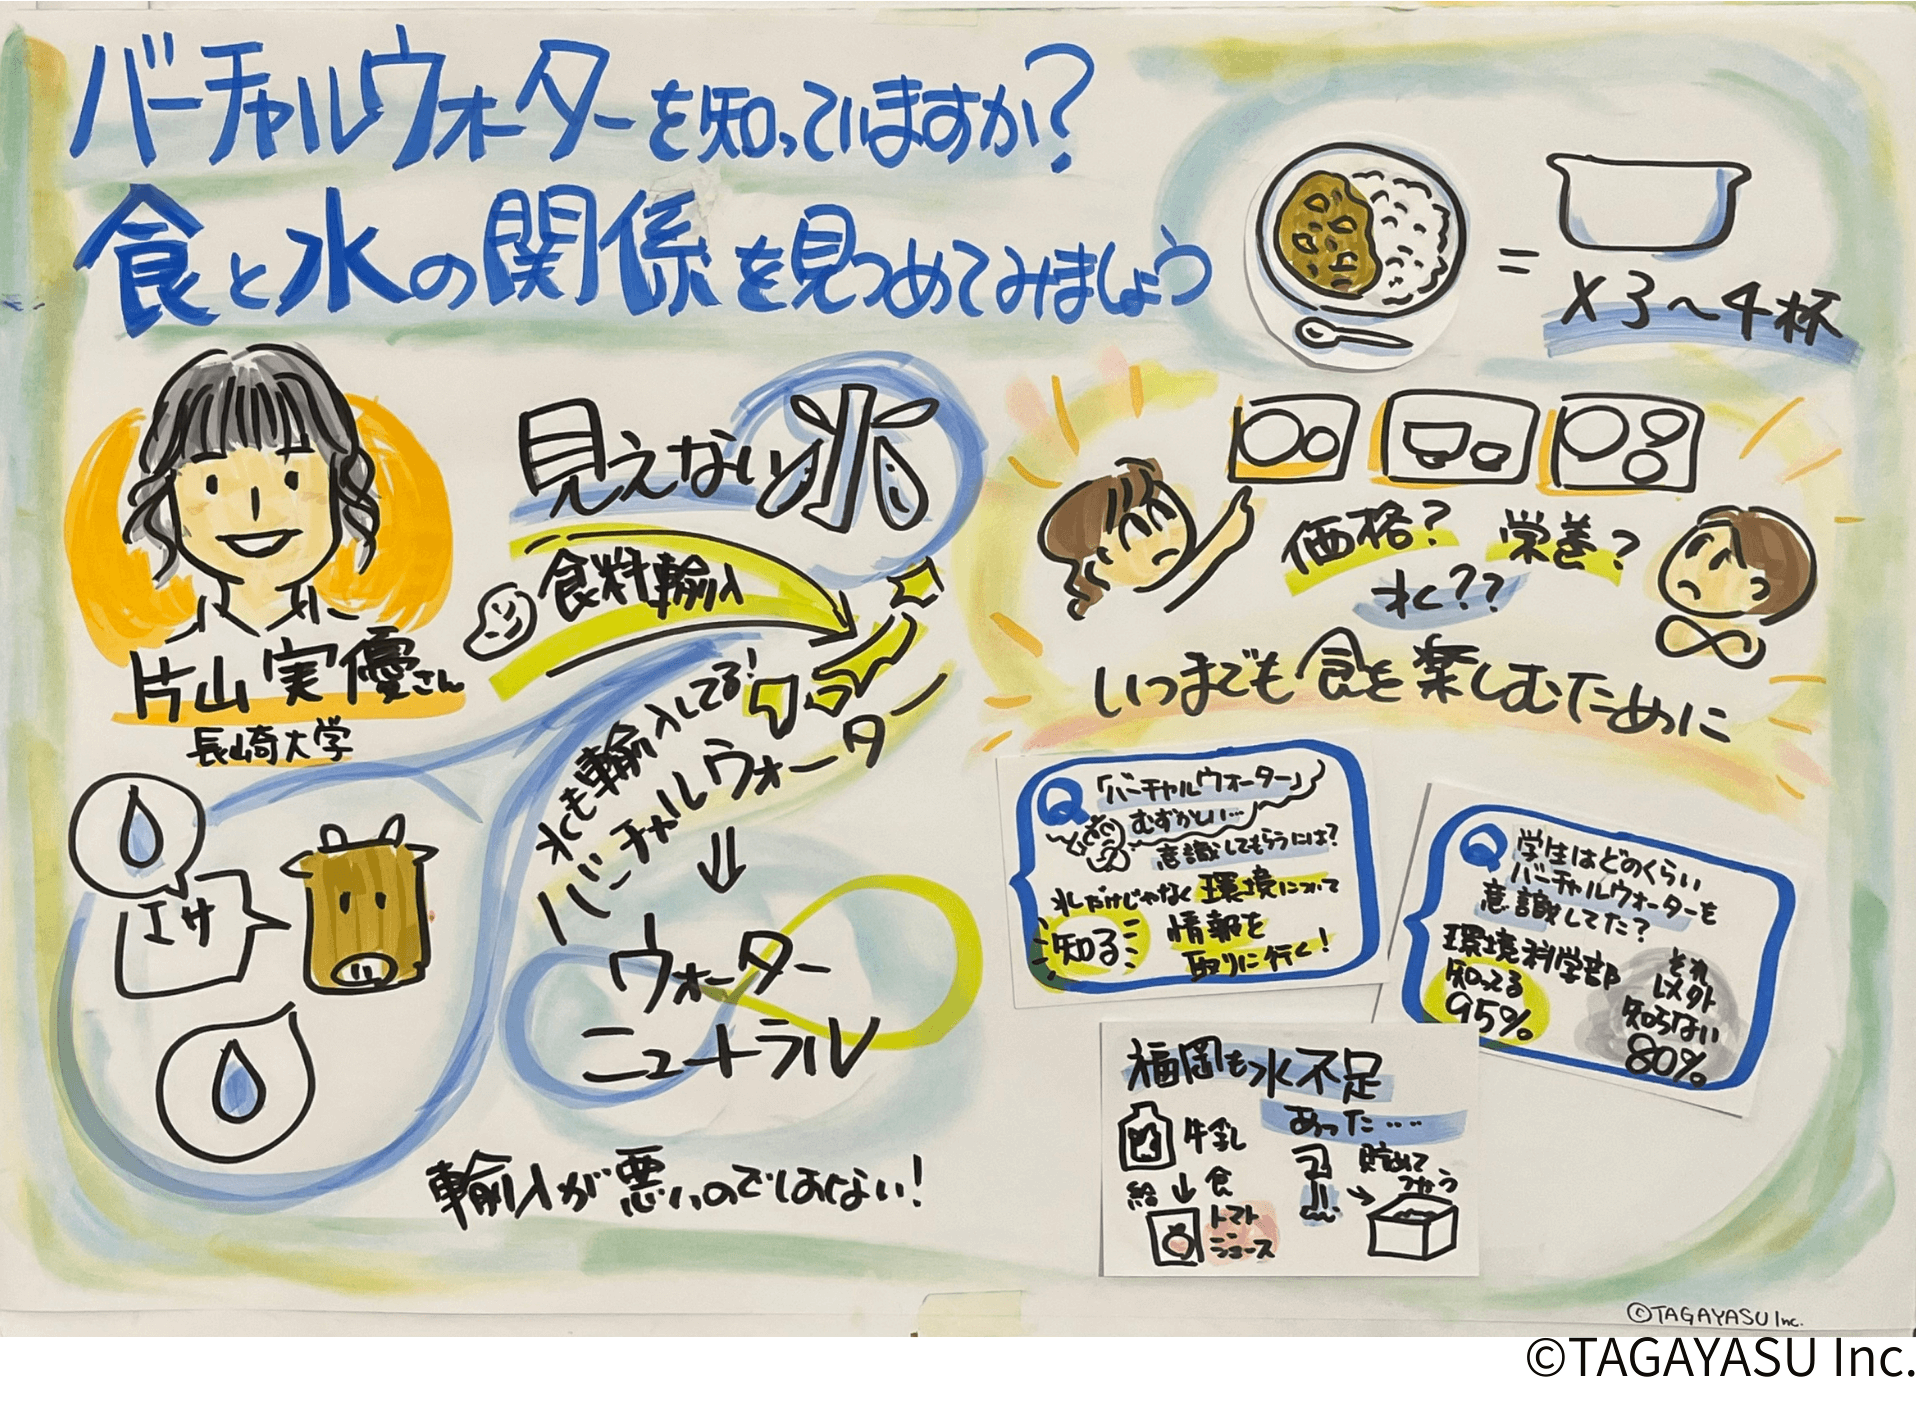 バーチャルウォーターを知っていますか?
食と水の関係を見つめてみましょう
= x3〜4杯
片山実優さん
長崎大学
見えない水
食料輸入
水も輸入してる!
バーチャルウォーター
↓
ウォーター
ニュートラル
エサ
輸入が悪いのではない!
価格? 栄養?
水??
いつまでも食を楽しむために
Q 「バーチャルウォーター」
むずかしい…
意識してもらうには?
水だけじゃなく環境について
知る
情報を
取りに行く!
Q 学生はどのくらい
バーチャルウォーターを
意識してた?
環境科学部
知ってる
95%
それ
以外
知らない
80%
福岡も水不足
あった….
牛乳
給↓食
トマト
ジュース
貯めて
つかう
©TAGAYASU Inc.
©TAGAYASU Inc.